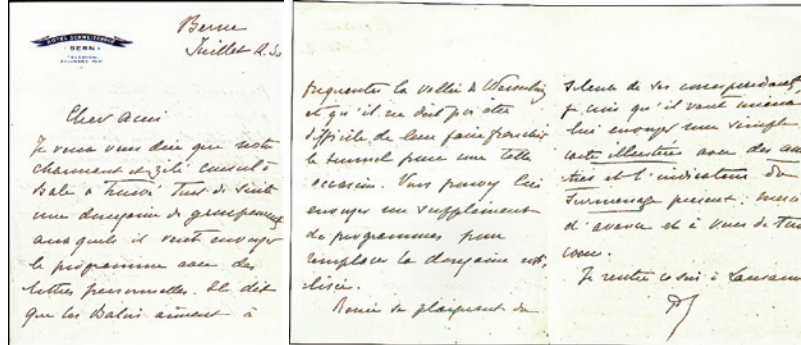 HOTEL SCHWEIZERHOF
BERN
Berne
Juillet 2.30
Cher ami
Je veux vous dire que notre
charmant et zélé consul à
Bale a trouvé tout de suite
une douzaine de groupements
auxquels il veut envoyer
le programme avec des
lettres personnelles. Il dit
que les Balois aiment à
fréquenter la vallée de
et qu'il ne doit pas être
difficile de leur faire franchir
le tunnel pour une telle
occasion. Vous pouvez lui
envoyer un supplément
de programmes pour
remplacer la douzaine
Renée se plaignant du
silence de ses correspondants,
je crois qu'il vaut mieux
lui envoyer une simple
carte illustrée avec des
et l'indicateur du
surmenage présent. merci
d'avance et à vous de tout
coeur.
Je rentre ce soir à Lausanne